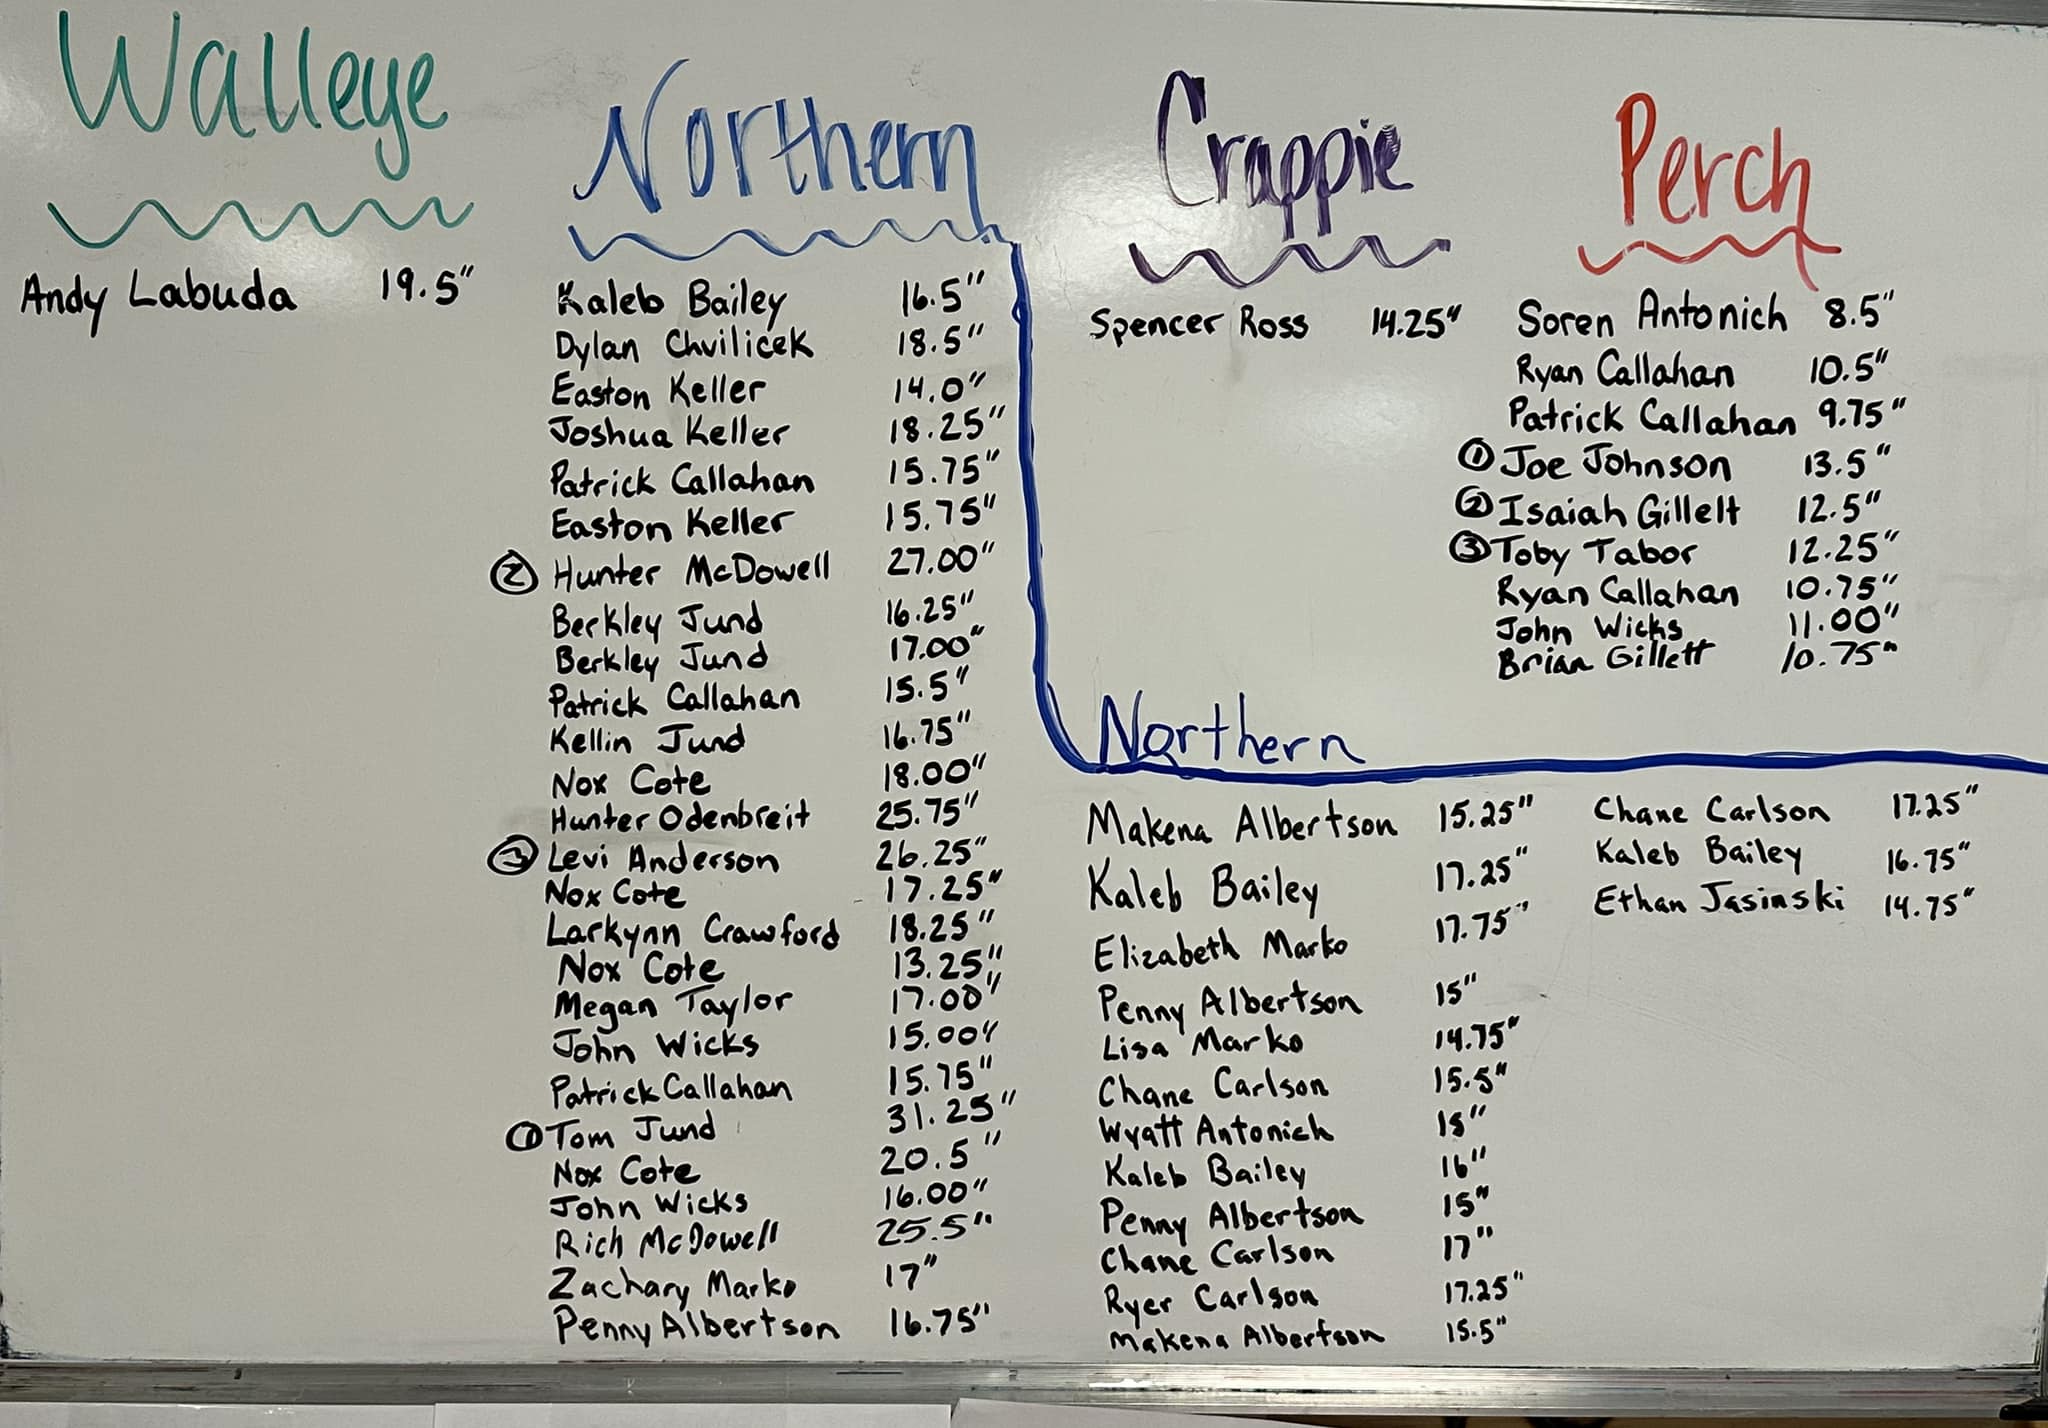 Walleye
Andy Labuda 19.5"
Northern
Kaleb Bailey 16.5"
Dylan Chvilicek 18.5"
Easton Keller 14.0"
Joshua Keller 18.25"
Patrick Callahan 15.75"
Easton Keller 15.75"
② Hunter McDowell 27.00"
Berkley Jund 16.25"
Berkley Jund 17.00"
Patrick Callahan 15.5"
Kellin Jund 16.75"
Nox Cote 18.00"
Hunter Odenbreit 25.75"
③ Levi Anderson 26.25"
Nox Cote 17.25"
Larkynn Crawford 18.25"
Nox Cote 13.25"
Megan Taylor 17.00"
John Wicks 15.00"
Patrick Callahan 15.75"
① Tom Jund 31.25"
Nox Cote 20.5"
John Wicks 16.00"
Rich McDowell 25.5"
Zachary Marko 17"
Penny Albertson 16.75"
Crappie
Spencer Ross 14.25"
Perch
Soren Antonich 8.5"
Ryan Callahan 10.5"
Patrick Callahan 9.75"
① Joe Johnson 13.5"
② Isaiah Gillett 12.5"
③ Toby Tabor 12.25"
Ryan Callahan 10.75"
John Wicks 11.00"
Brian Gillett 10.75"
Northern
Makena Albertson 15.25"
Kaleb Bailey 17.25"
Elizabeth Marko 17.75"
Penny Albertson 15"
Lisa Marko 14.75"
Chane Carlson 15.5"
Wyatt Antonich 15"
Kaleb Bailey 16"
Penny Albertson 15"
Chane Carlson 17"
Ryer Carlson 17.25"
Makena Albertson 15.5"
Chane Carlson 17.25"
Kaleb Bailey 16.75"
Ethan Jasinski 14.75"